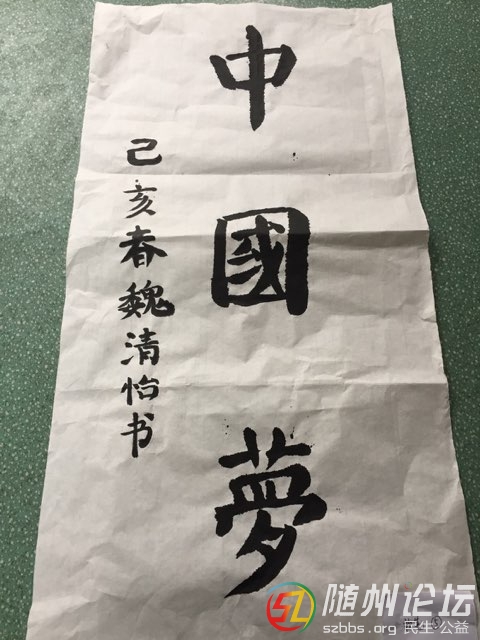 中國夢
己亥春魏清怡书
随州论坛
szbbs.org 民生·公益